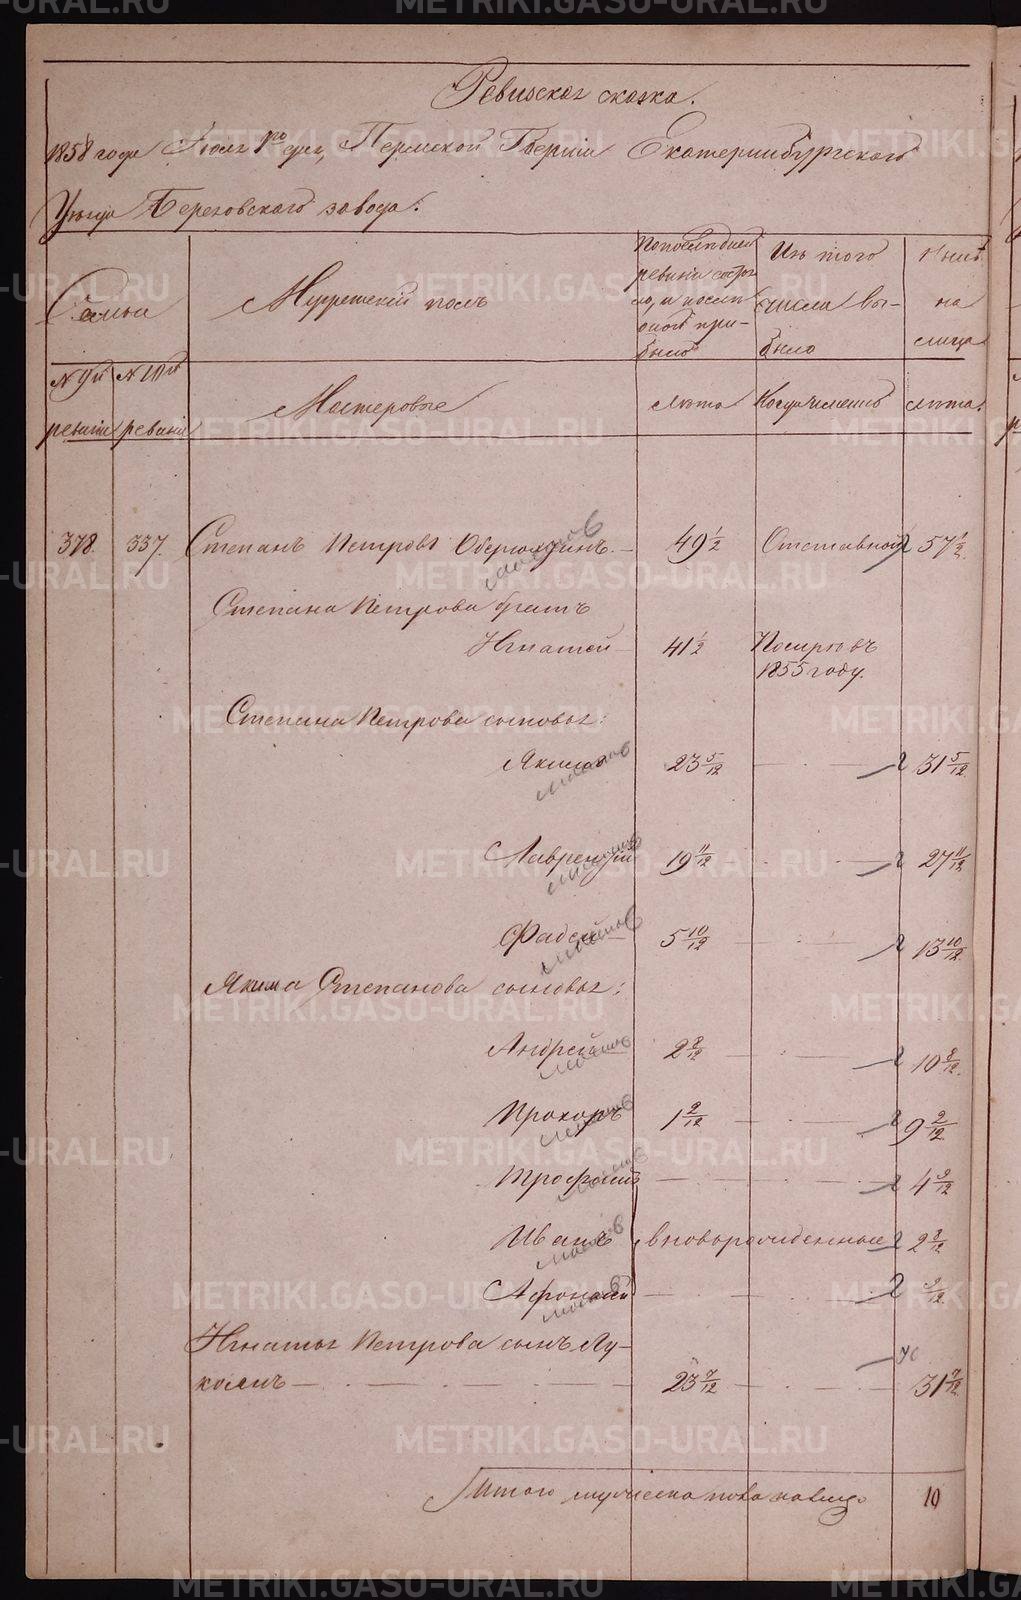 Ревизская сказка.
1858 года Июля 1го дня, Пермской Губернии Екатеринбургского
Уезда Березовского завода:
Семьи
Мужеский полъ
По последней ревизии состояло, и после оной прибыло
Изъ того числа выбыло
Ныне на лицо
№ 9й ревизiи
№ 10й ревизiи
Мастеровые
Лета
Когда именно
Лета.
378. 337. Степанъ Петровъ Обертюхинъ. 49 1/2 Отставной 57 1/2
Степана Петрова братъ
Игнатей 41 1/2 Померъ въ
1855 году.
Степана Петрова сыновья:
Якимъ 23 5/12 31 5/12
Лаврентiй 19 11/12 27 11/12
Фадей 5 10/12 13 10/12
Якима Степанова сыновья:
Андрей 2 8/12 10 8/12
Прохоръ 1 2/12 9 2/12
Трофимъ 4 9/12
Иванъ вновьрожденные 2 8/12
Афонасiй 9/12
Игнатья Петрова сынъ Лу-
коянъ 23 7/12 31 7/12
Итого мужеска пола налицо 10
METRIKI.GASO-URAL.RU